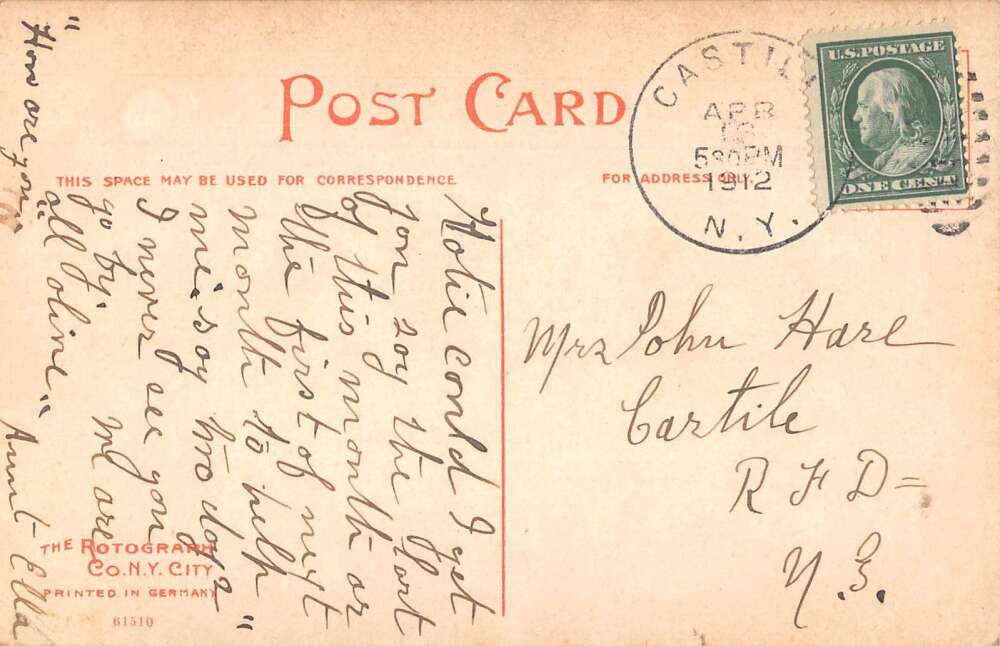 POST CARD
THIS SPACE MAY BE USED FOR CORRESPONDENCE
FOR ADDRESS ONLY
CASTILE
APR
530PM
1912
N.Y.
U.S. POSTAGE
ONE CENT
Mrs John Hare
Castile
R F D =
N.Y.
"How are you"
Hotie could I get
you 2oy the Last
of this month or
the first of next
month to help
me "soy two days"
I never see you
go by. we are
all oline"
Aunt Ella
THE ROTOGRAPH
CO. N.Y. CITY
PRINTED IN GERMANY
61510